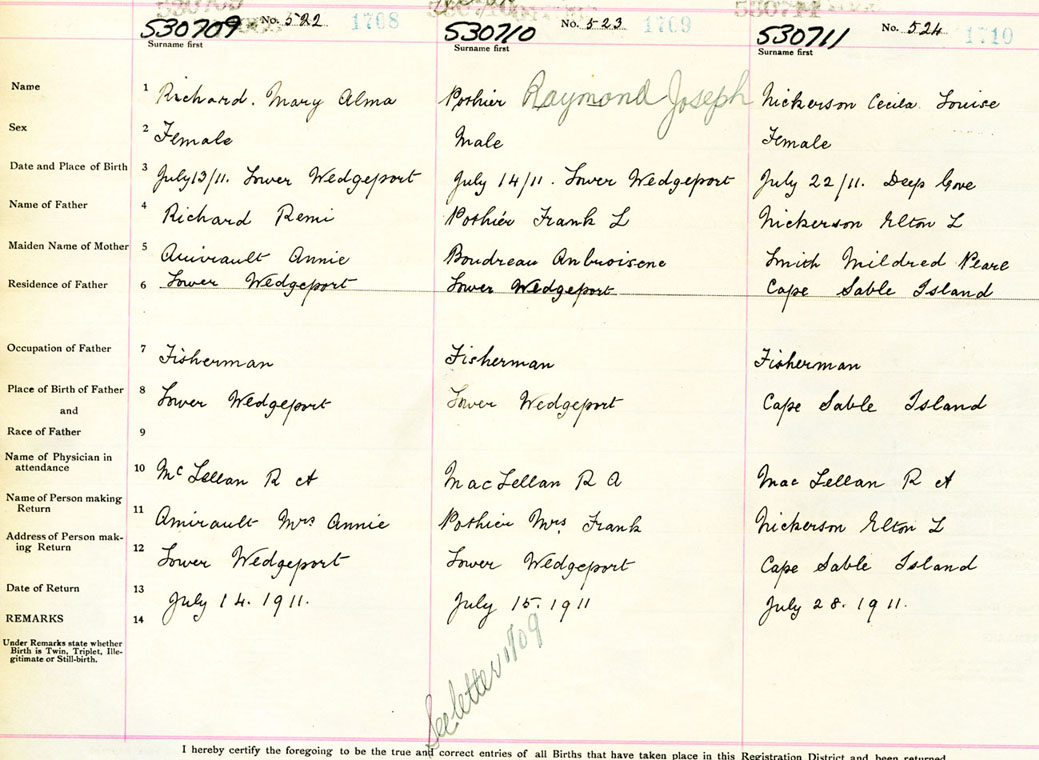 530709 No. 522 1708 530710 No. 523 1709 530711 No. 524 1710
Surname first Surname first Surname first
Name 1 Richard. Mary Alma Pothier Raymond Joseph Nickerson Cecila Louise
Sex 2 Female Male Female
Date and Place of Birth 3 July 13/11. Lower Wedgeport July 14/11. Lower Wedgeport July 22/11. Deep Cove
Name of Father 4 Richard Remi Pothier Frank L Nickerson Elton L
Maiden Name of Mother 5 Amirault Annie Boudreau Ambroisene Smith Mildred Pearl
Residence of Father 6 Lower Wedgeport Lower Wedgeport Cape Sable Island
Occupation of Father 7 Fisherman Fisherman Fisherman
Place of Birth of Father 8 Lower Wedgeport Lower Wedgeport Cape Sable Island
and
Race of Father 9
Name of Physician in
attendance 10 McLellan R A MacLellan R A MacLellan R A
Name of Person making
Return 11 Amirault Mrs Annie Pothier Mrs Frank Nickerson Elton L
Address of Person mak-
ing Return 12 Lower Wedgeport Lower Wedgeport Cape Sable Island
Date of Return 13 July 14. 1911. July 15. 1911 July 28. 1911.
REMARKS 14
Under Remarks state whether
Birth is Twin, Triplet, Ille-
gitimate or Still-birth.
See letter 1709
I hereby certify the foregoing to be the true and correct entries of all Births that have taken place in this Registration District and been returned